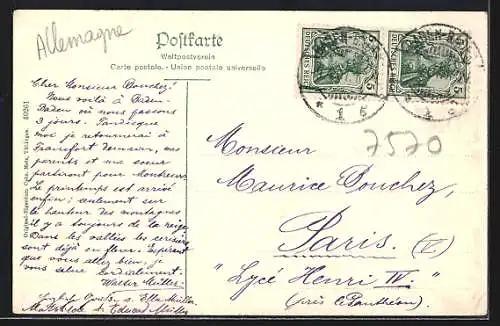 Allemagne
Postkarte
Weltpostverein
Carte postale. - Union postale universelle
DEUTSCHES REICH
5
DEUTSCHES REICH
5
BADEN-BADEN
7570
Cher Monsieur Douchez!
Nous voilà à Baden-
Baden où nous passons
3 jours. Tandisque
moi je retournerai à
Francfort demain, mes
parents et ma soeur
partiront pour Montreux.
Le printemps est arrivé
enfin; seulement sur
la hauteur des montagnes
il y a toujours de la neige.
Dans les vallées les cerisiers
sont déjà en fleurs. Espérant
que vous allez bien, je
vous salue cordialement.
Walter Müller.
Ella Müller
Eduard Müller
Monsieur
Maurice Douchez,
Paris. (V)
"Lycé Henri IV."
(près le Panthéon).
40261